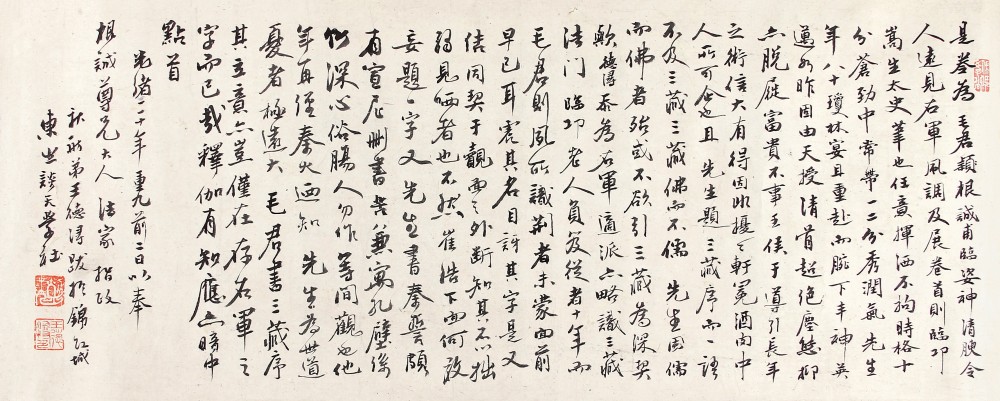 是卷為 毛君穎根誠甫臨姿神清腴令
人遠見右軍風調及展卷首則臨邛
嵩生太史筆也任意揮洒不狗時格十
分蒼勁中常帶一二分秀潤氣 先生
年八十瓊林宴且重赴而腕下丰神英
邁如昨固由天授清骨超絕塵態抑
亦脫屣富貴不事王侯于導引長年
之術信大有得固非擾々軒冕酒肉中
人所可企也且 先生題三藏序而一語
不及三藏三藏佛而不儒 先生固儒
而佛者殆或不欲引三藏為深契
歟德潯忝為右軍適派亦略識三藏
法門臨邛老人負笈從者十年而
毛君則夙所識荆者未蒙面前
早已耳震其名目訝其字是又
結同契于覿面之外斷知其不拙
弱見哂者也不然崔浩下面何敢
妄題一字又 先生書秦誓頗
有宣尼刪書苦兼寓孔壁絲
似深心俗腸人勿作等閒觀也他
年再經秦火迺知 先生為世道
憂者極遠大 毛君書三藏序
其立意亦豈僅在存右軍之
字而已哉釋伽有知應亦暗中
點首
光緒二十年重九前二日以奉
根誠尊兄大人 法家 指政
秋舫弟王德潯跋於錦江城
東之談天學社